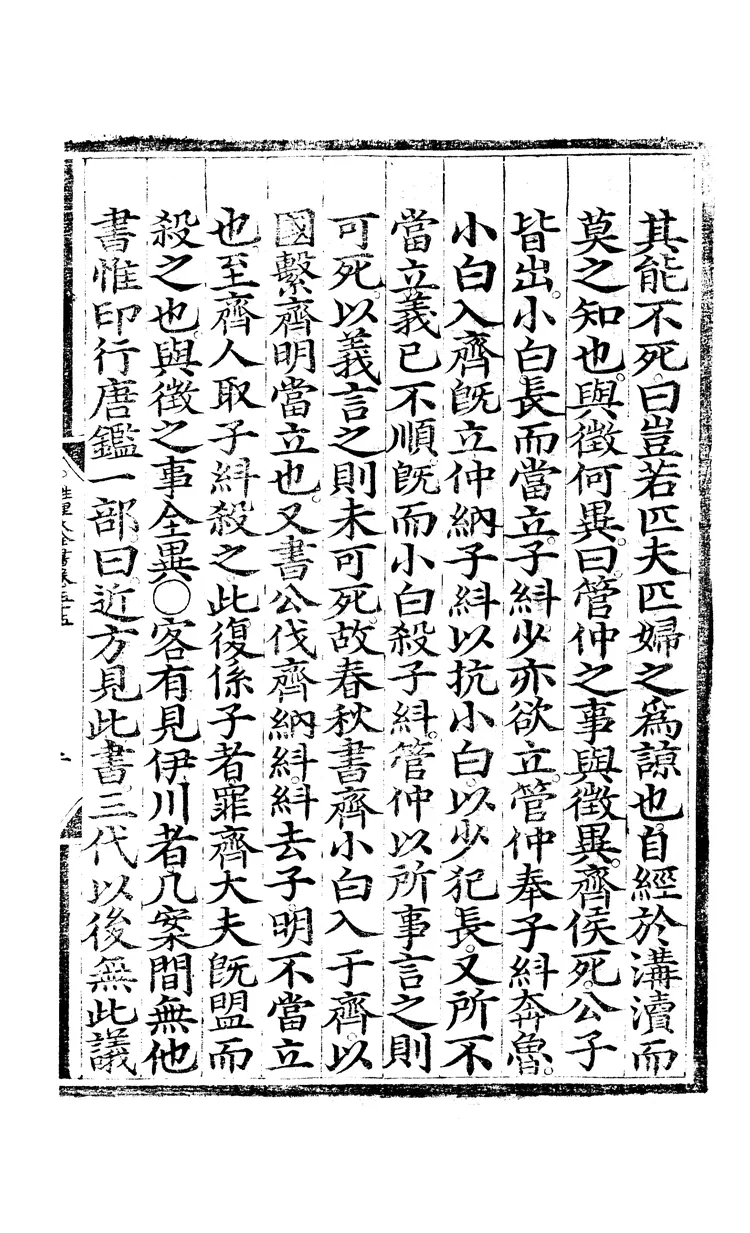 其能不死曰豈若匹夫匹婦之爲諒也自經於溝瀆而
莫之知也與徵何異曰管仲之事與徵異齊侯死公子
皆出小白長而當立子糾少亦欲立管仲奉子糾奔魯
小白入齊旣立仲納子糾以抗小白以少犯長又所不
當立義已不順旣而小白殺子糾管仲以所事言之則
可死以義言之則未可死故春秋書齊小白入于齊以
國繫齊明當立也又書公伐齊納糾糾去子明不當立
也至齊人取子糾殺之此復係子者罪齊大夫旣盟而
殺之也與徵之事全異○客有見伊川者几案間無他
書惟印行唐鑑一部曰近方見此書三代以後無此議
性理大全書卷